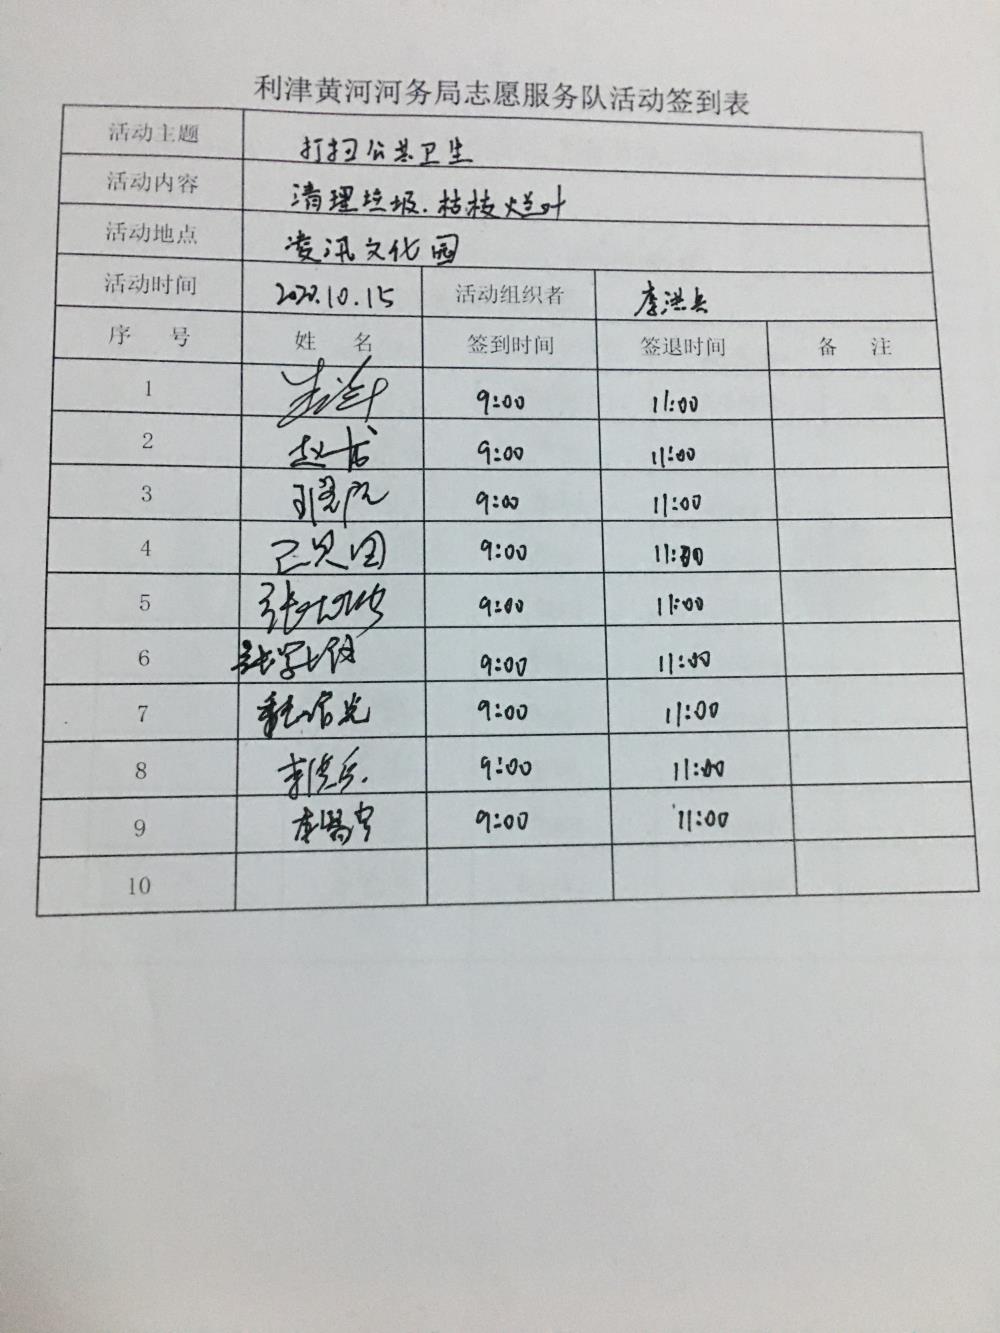 利津黄河河务局志愿服务队活动签到表
活动主题 打扫公共卫生
活动内容 清理垃圾.枯枝烂叶
活动地点 凌汛文化园
活动时间 2020.10.15 活动组织者 李洪兵
序 号 姓 名 签到时间 签退时间 备 注
1 9:00 11:00
2 赵 9:00 11:00
3 9:00 11:00
4 9:00 11:00
5 张 9:00 11:00
6 张 9:00 11:00
7 9:00 11:00
8 李洪兵 9:00 11:00
9 李 9:00 11:00
10